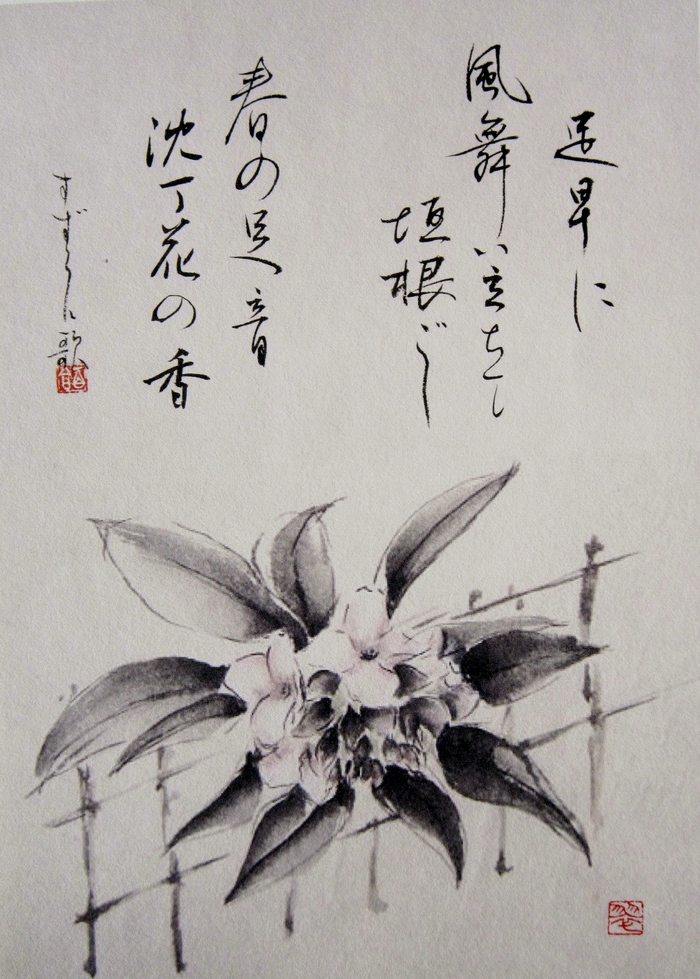 足早に
風舞い立ちし
垣根ごし
春の足音
沈丁花の香
すずらん歌